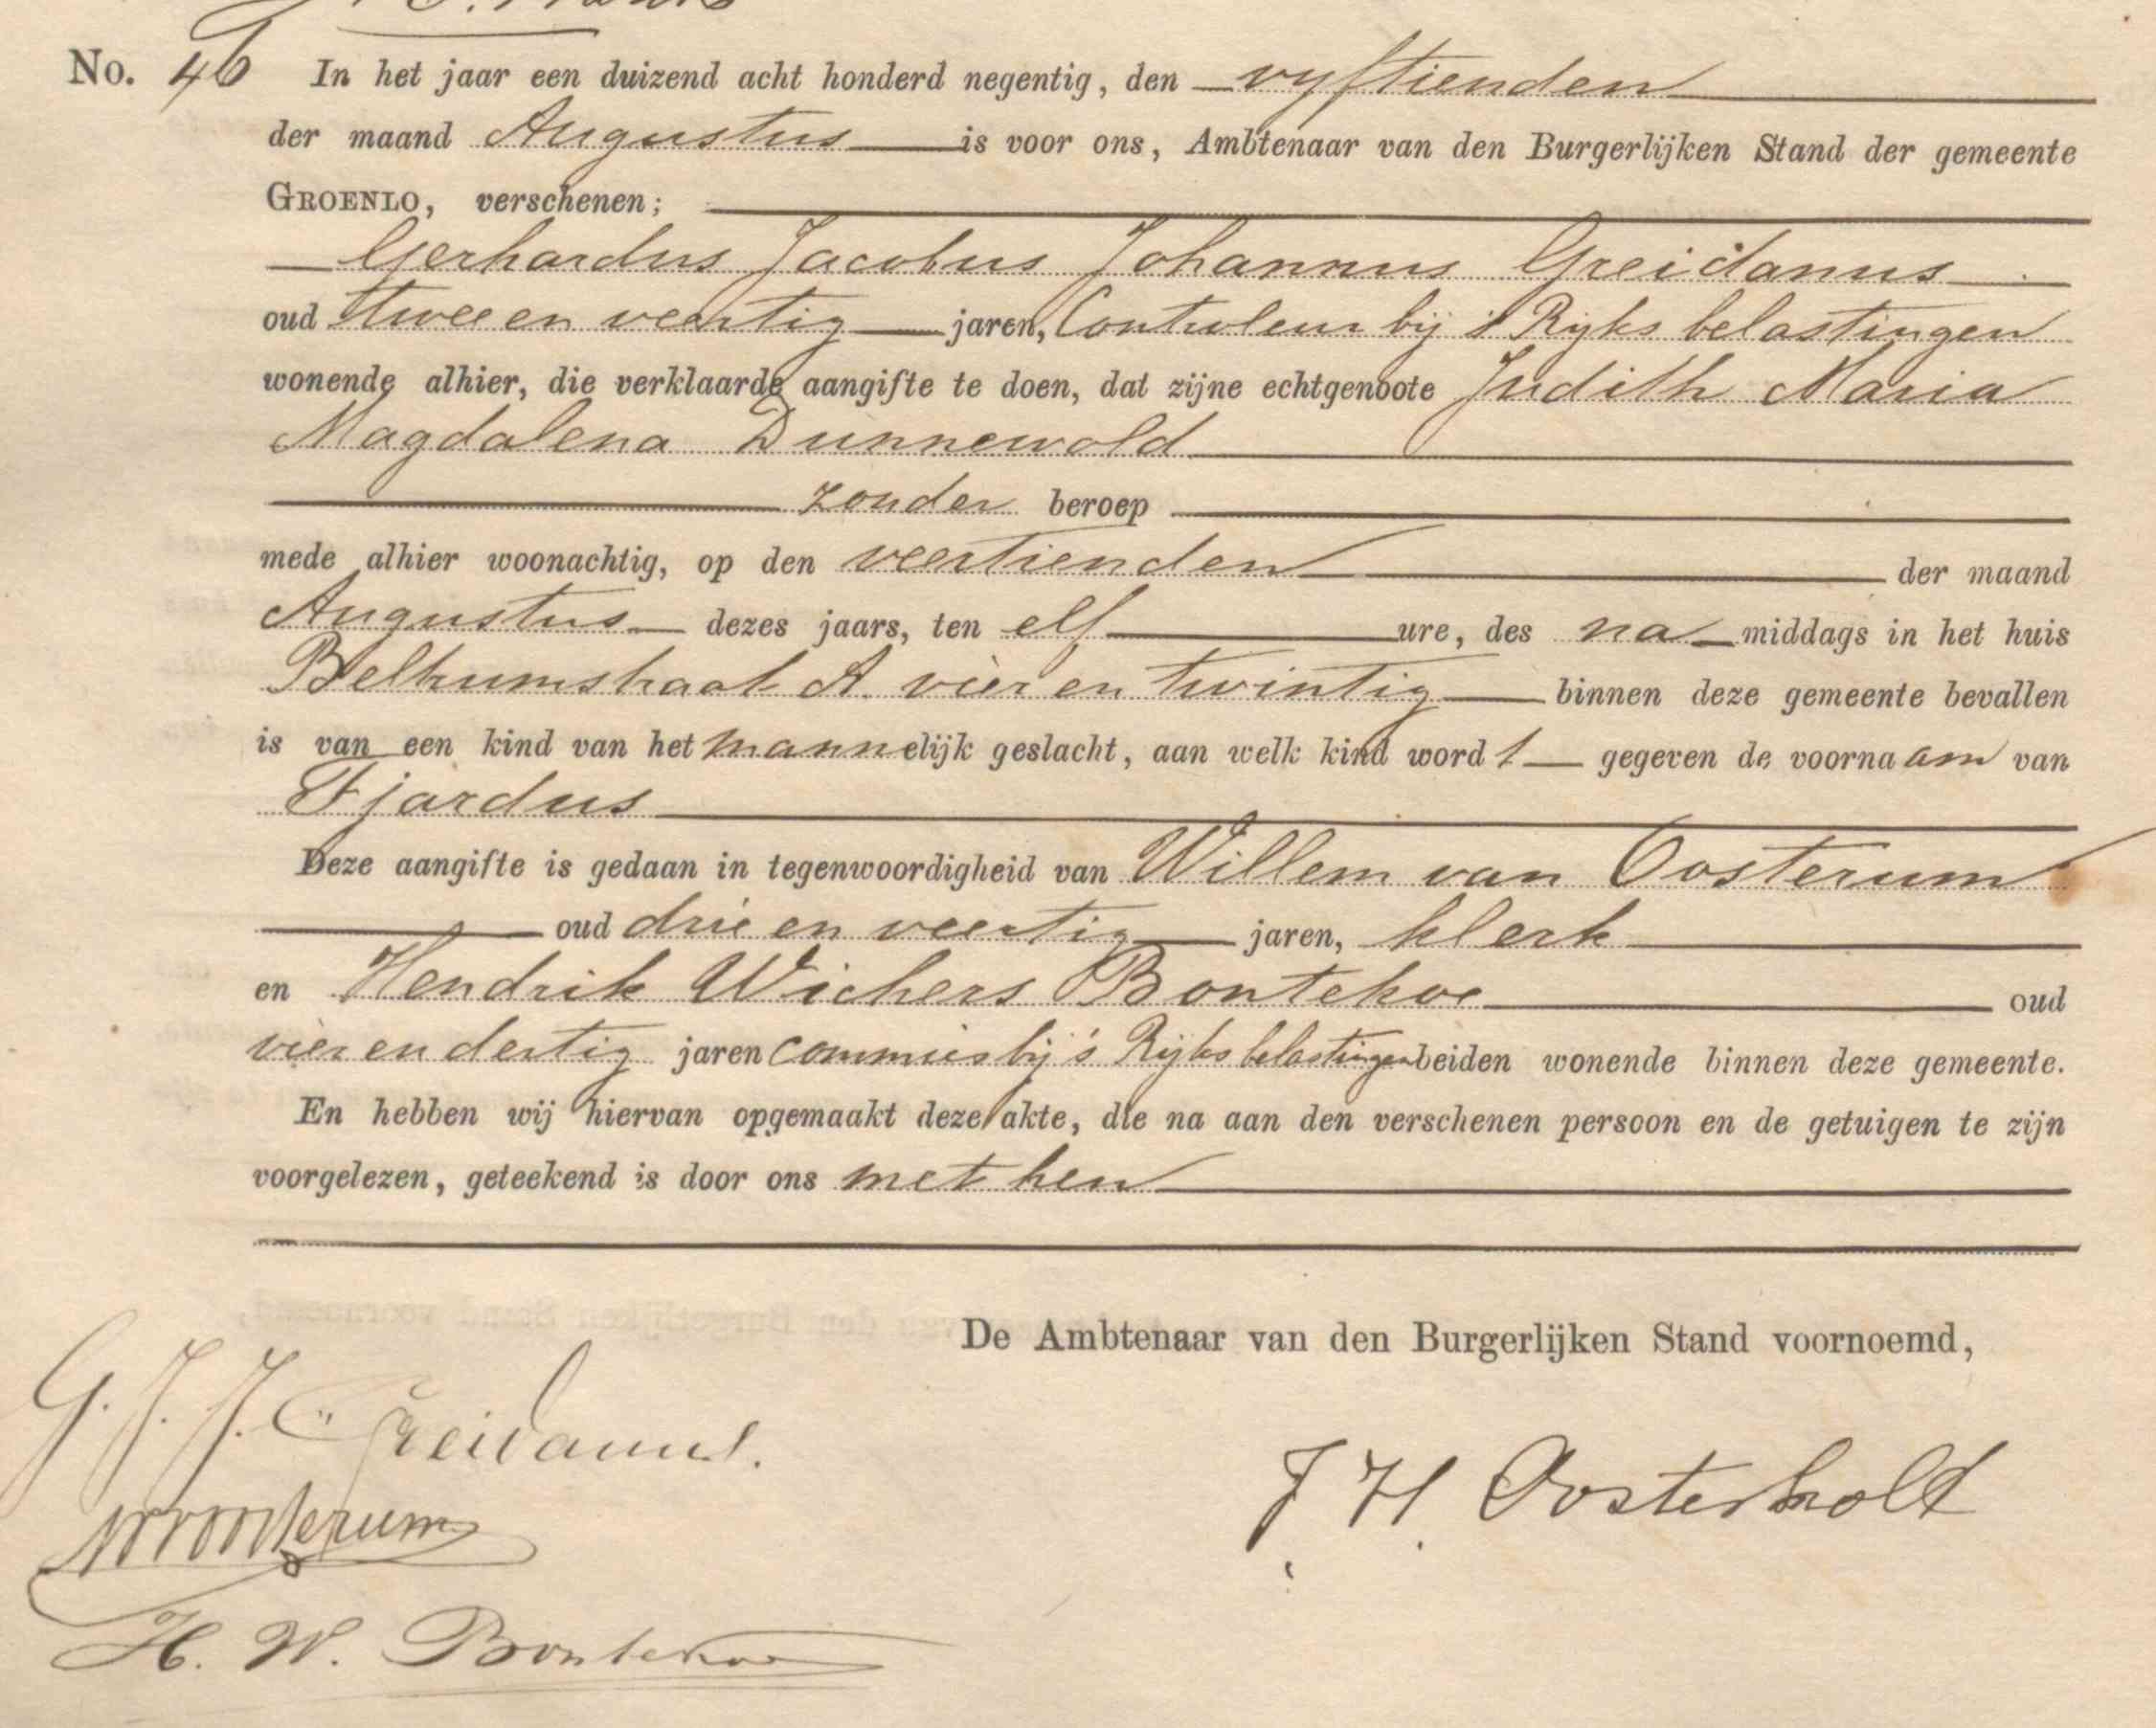 No. 46 In het jaar een duizend acht honderd negentig, den vyftienden
der maand Augustus is voor ons, Ambtenaar van den Burgerlijken Stand der gemeente
GROENLO, verschenen;
Gerhardus Jacobus Johannus Greidanus
oud twee en veertig jaren, Controleur bij 's Ryks belastingen
wonende alhier, die verklaarde aangifte te doen, dat zijne echtgenoote Judith Maria
Magdalena Dunnewold
zonder beroep
mede alhier woonachtig, op den veertienden der maand
Augustus dezes jaars, ten elf ure, des na middags in het huis
Beltrumstraat A. vier en twintig binnen deze gemeente bevallen
is van een kind van het mannelijk geslacht, aan welk kind wordt gegeven de voornaam van
Tjardus
Deze aangifte is gedaan in tegenwoordigheid van Willem van Oosterum
oud drie en veertig jaren, klerk
en Hendrik Wichers Bontekoe oud
vier en dertig jaren commies bij 's Rijks belastingen beiden wonende binnen deze gemeente.
En hebben wij hiervan opgemaakt deze akte, die na aan den verschenen persoon en de getuigen te zijn
voorgelezen, geteekend is door ons met hen
De Ambtenaar van den Burgerlijken Stand voornoemd,
G. J. J. Greidanus.
J H Oosterholt
WvOosterum
H. W. Bontekoe